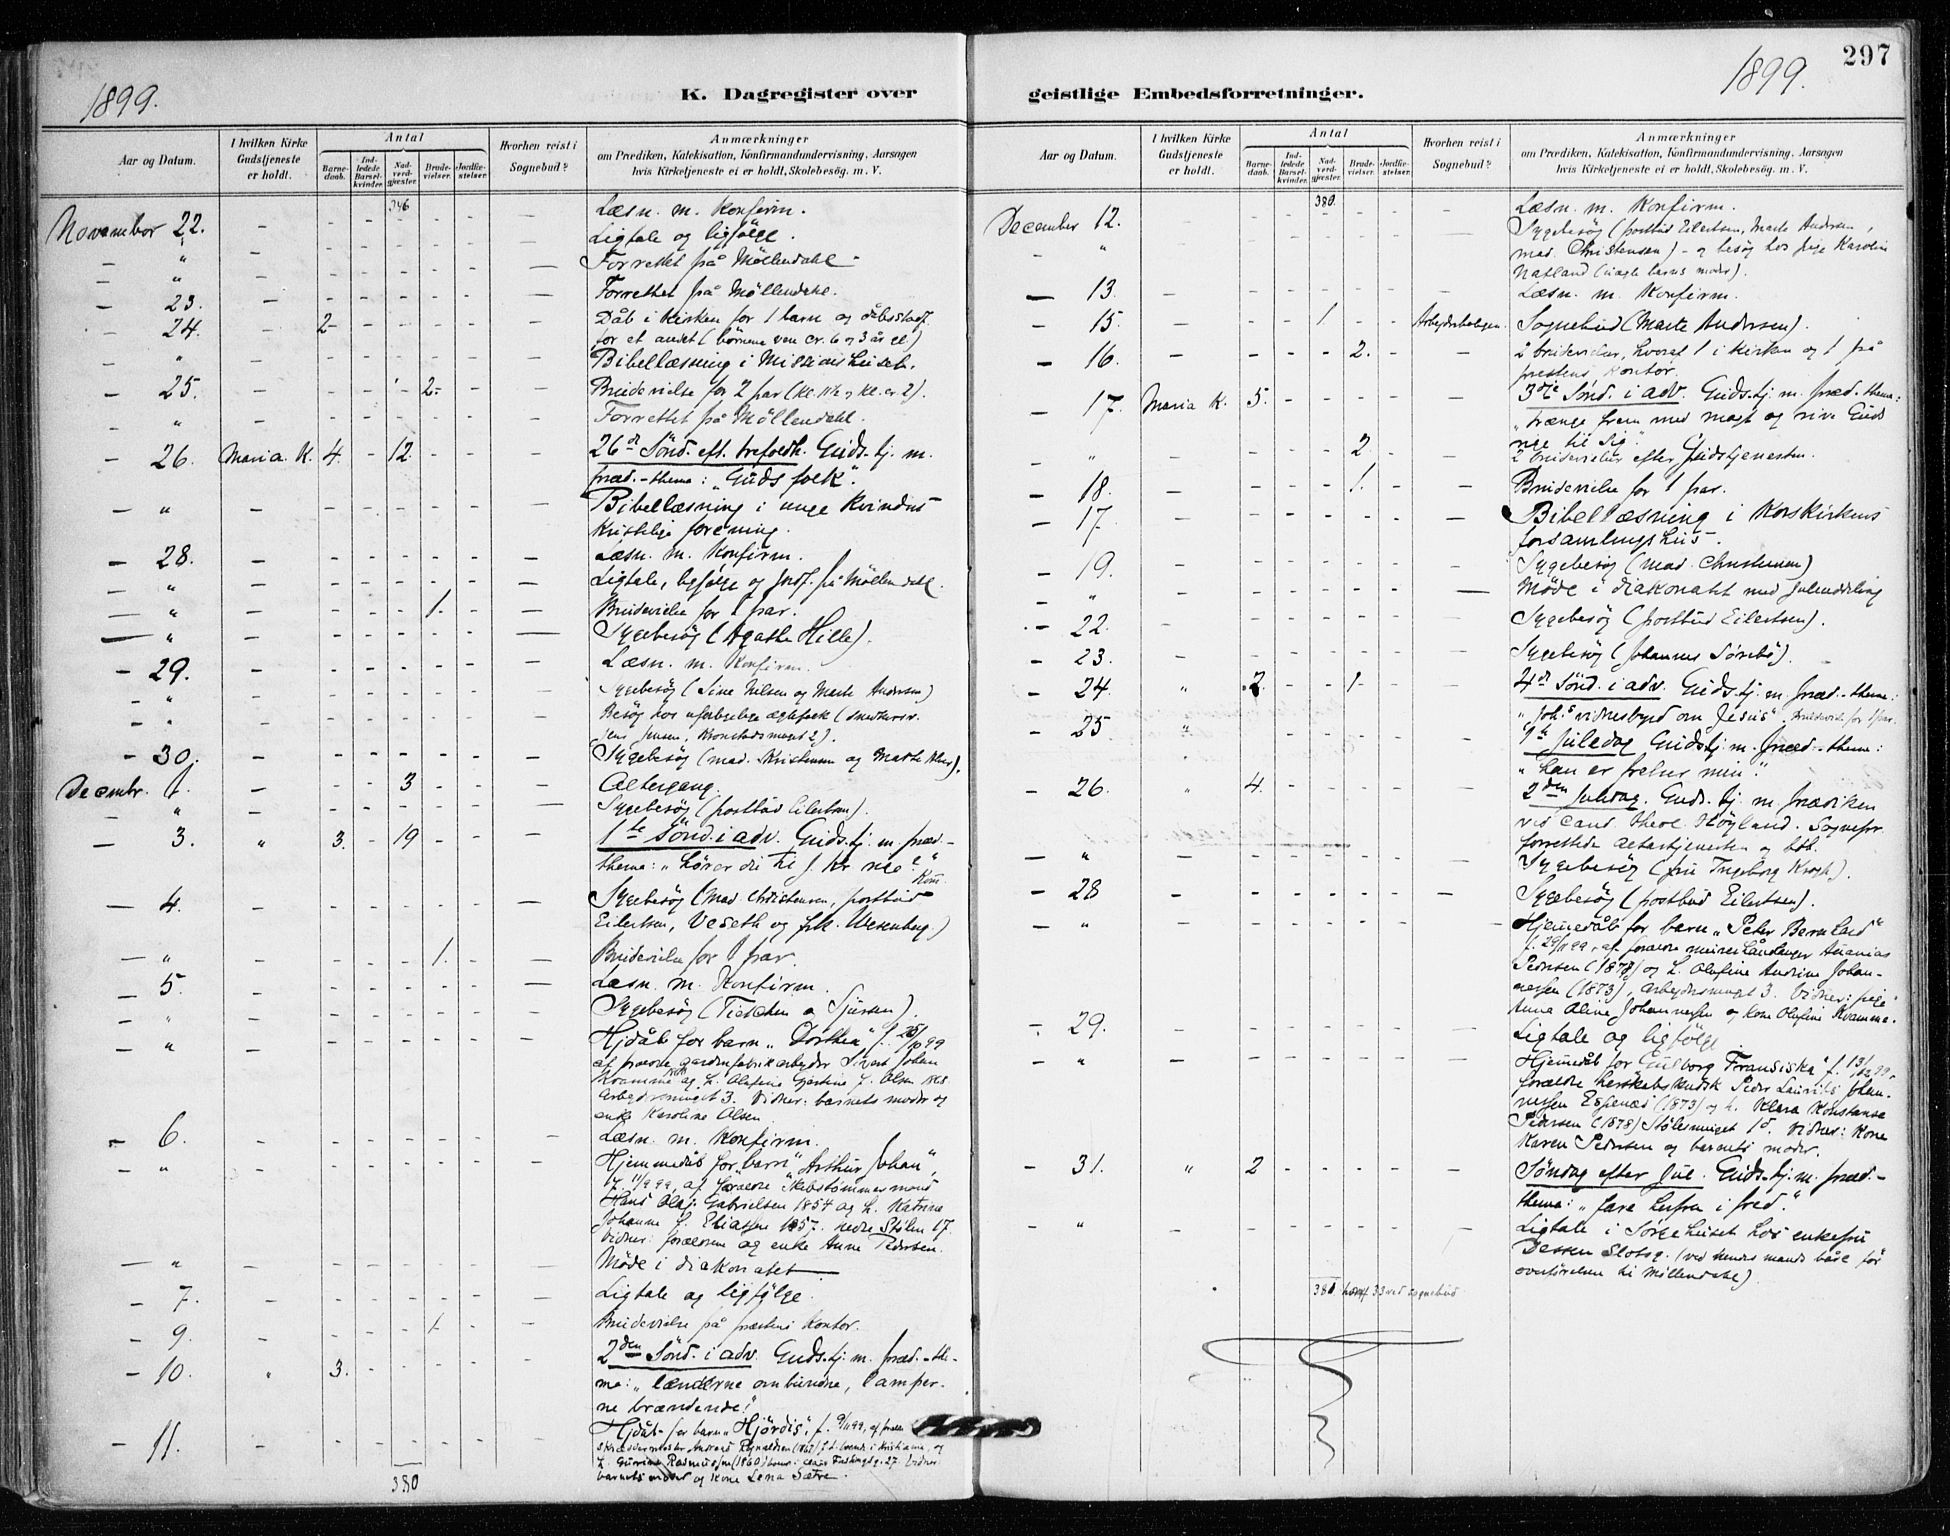 297
1899.
1899.
K. Dagregister over geistlige Embedsforretninger.
Aar og Datum.
I hvilken Kirke Gudstjeneste er holdt.
Antal
Barnedaab.
Indledede Barselkvinder.
Nadverdgjester.
Brudevielser.
Jordfæstelser.
Hvorhen reist i Sognebud?
Anmærkninger
om Prædiken, Katekisation, Konfirmandundervisning, Aarsagen
hvis Kirketjeneste ei er holdt, Skolebesøg. m. V.
346
November 22. Læsn. m. Konfirm.
" Ligtale og ligfølge.
" Forrettet på Møllendahl.
23. Forrettet på Møllendahl.
24. 2 Dåb i kirken for 1 barn og dåbsstadf.
for et andet (børnene ven cr. 6 og 3 år gl)
" Bibellæsning i Missionshuset.
25. 2 Brudevielse for 2 par
" Forrettet på Møllendahl.
26. Maria K. 4. 12. 26d Sönd. eft. trefoldh. Guds.tj. m.
præd.-thema: "Guds folk".
" Bibellæsning i unge kvinders
kristelige forening.
28. Læsn. m. Konfirm.
" Ligtale, ligfølge og jordf. på Møllendahl.
" 1. Brudevielse for 1 par.
" Sygebesøg (Agathe Hille).
29. Læsn. m. Konfirm.
" Sygebesøg (Sine Nilsen og Marte Andersen)
" Besøg hos uforligelige ægtefolk
30. Sygebesøg (mad. Kristensen og Marte
Decembr. 1. 3 Altergang.
" Sygebesøg (postbud Eilertsen).
3. " 3. 19 1te Sönd. i adv. Guds.tj. m. præd.-
thema: "Hører du til J. Kr. rige?"
4. Sygebesøg (mad. Christensen, postbud
Eilertsen, Veseth og frk. Wesenberg.)
" 1. Brudevielse for 1 par.
5. Læsn. m. Konfirm.
" Sygebesøg
" Hjdåb for barn "Dorthea" f.
Kvamme og h. Olufine
Arbeidersmuget 3. Vidner: barnets moder og
enke Karoline Olsen
6. Læsn. m. Konfirm.
" Hjemmedåb for barn "Arthur Johan",
f. 11/9 99, af forældre
Hans Olaj Gabrielsen 1854 og h. Katrine
Johanne f. Eliassen 1857. nedre Stølen 17.
Vidner: forældrene og enke Anne Pedersen.
" Møde i diakonatet
7. Ligtale og ligfølge.
9. 1. Brudevielse på præstens kontor.
10. " 3. 2den Sönd. i adv. Guds.tj. m. præd.-the-
ma: "lænderne ombundne, lamper-
ne brændende!"
11. Hjdåb for barn "Hjördis", f. 9/11 99,
barnets moder og kone Lena Sætre.
380
Aar og Datum.
I hvilken Kirke Gudstjeneste er holdt.
Antal
Barnedaab.
Indledede Barselkvinder.
Nadverdgjester.
Brudevielser.
Jordfæstelser.
Hvorhen reist i Sognebud?
Anmærkninger
om Prædiken, Katekisation, Konfirmandundervisning, Aarsagen
hvis Kirketjeneste ei er holdt, Skolebesøg. m. V.
380.
December 12. Læsn. m. Konfirm.
" Sygebesøg (postbud Eilertsen, Marte Andersen,
mad. Christensen) - og besøg hos pige Karoline
Natland (uægte barns moder).
13. Læsn. m. Konfirm.
15. 1 Arbeiderboligen. Sognebud (Marte Andersen).
16. 2. 2 brudevielser, hvoraf 1 i kirken og 1 på
præstens kontor.
17. Maria K. 5. 3die Sönd. i adv. Guds.tj. m. præd.-thema:
"trænge frem med magt og rive Guds
rige til sig".
" 2 2 brudevielser efter gudstjenesten.
18. 1. Brudevielse for 1 par.
17. Bibellæsning i Korskirkens
forsamlingshus.
19. Sygebesøg (mad. Christensen)
" Møde i diakonatet med juleuddeling
22. Sygebesøg (postbud Eilertsen).
23. Sygebesøg
24. " 2. 1 4d Sönd. i adv. Guds.tj. m. præd.-thema:
"Joh.s vidnesbyrd om Jesus". Brudevielse for 1 par.
25 " 1te Juledag Guds.tj. m. præd.-thema:
"han er frelser min".
26. " 4. 2den Juledag. Guds.tj. m. prædiken
ved cand. theol. Høyland. Sognepr.
forrettede altertjenesten og dåb.
" Sygebesøg (fru Ingeborg Krogh).
28 Sygebesøg (postbud Eilertsen).
" Hjemmedåb for barn "Peter Bernhard"
Pedersen (1878) og h. Olufine Andrine Johan-
nessen (1873), Arbeidersmuget 3. Vidner: pige
Anna Oline Johannessen og kone Olufine Kvamme.
29. Ligtale og ligfølge.
" Hjemmedåb for "Gulborg Fransiska" f. 13/12 99,
forældre herskabskudsk Peder Laurits Johan-
nessen Espenæs (1873) og h. Klara Konstanse
Pedersen (1878) Stølesmuget 10. Vidner: kone
Karen Pedersen og barnets moder.
31. " 2 Søndag efter Jul. Guds.tj. m. præd.-
thema: "fare herfra i fred."
" Ligtale i Sørgehuset hos enkefru
Dessen Slotsg. (ved hendes mands båre før
overførelsen til Møllendahl)
381 hvoraf 33 ved sognebud